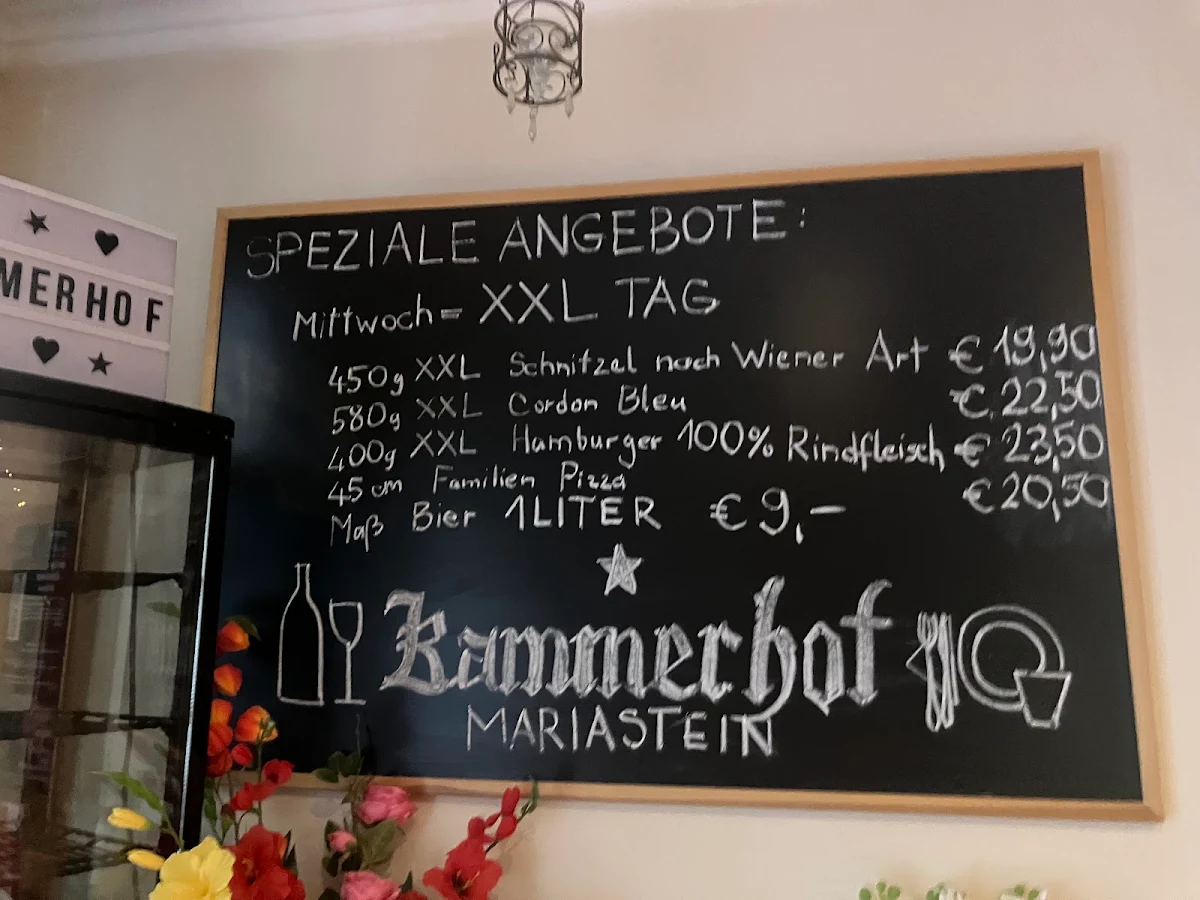 MERHOF
SPEZIALE ANGEBOTE:
Mittwoch = XXL TAG
450g XXL Schnitzel nach Wiener Art € 19,90
580g XXL Cordon Bleu € 22,50
400g XXL Hamburger 100% Rindfleisch € 23,50
45 cm Familien Pizza € 20,50
Maß Bier 1LITER € 9,-
Kammerhof
MARIASTEIN